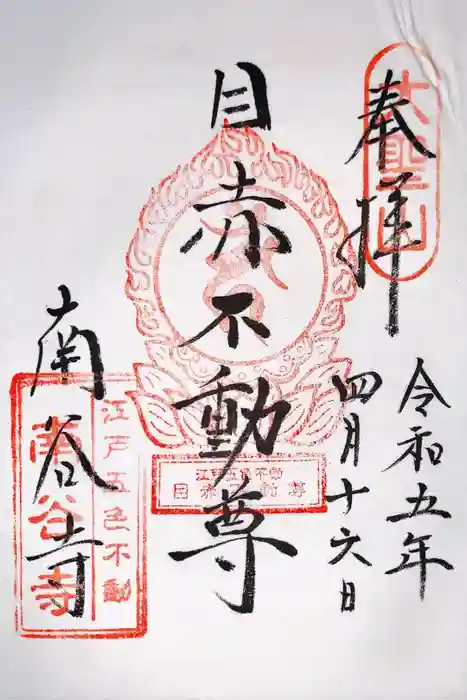 奉拝
大聖山
令和五年
四月十六日
目赤不動尊
江戸五色不動
目赤不動尊
南谷寺
江戸五色不動
南谷寺